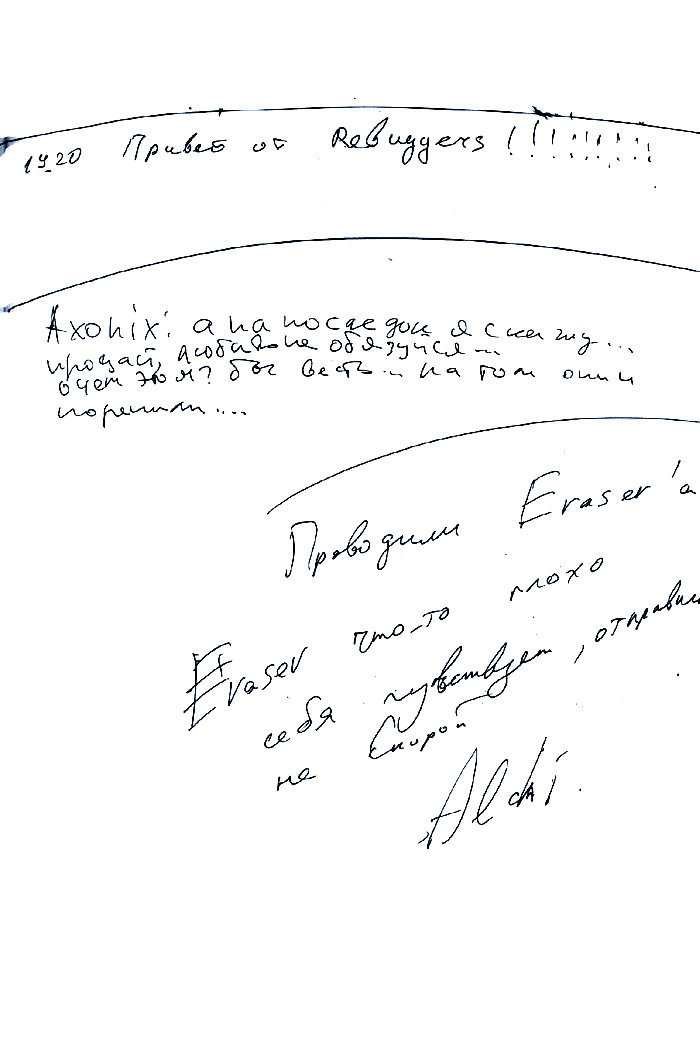 19.20 Привет от ReBuggers !!!!!!!!!
Axonix: а на последок я скажу...
прощай, любить не обязуйся...
о чем это я? бог весть... на том они и
порешили...
Проводили Eraser'а
Eraser что-то плохо
себя чувствует, отправил
на Скорой